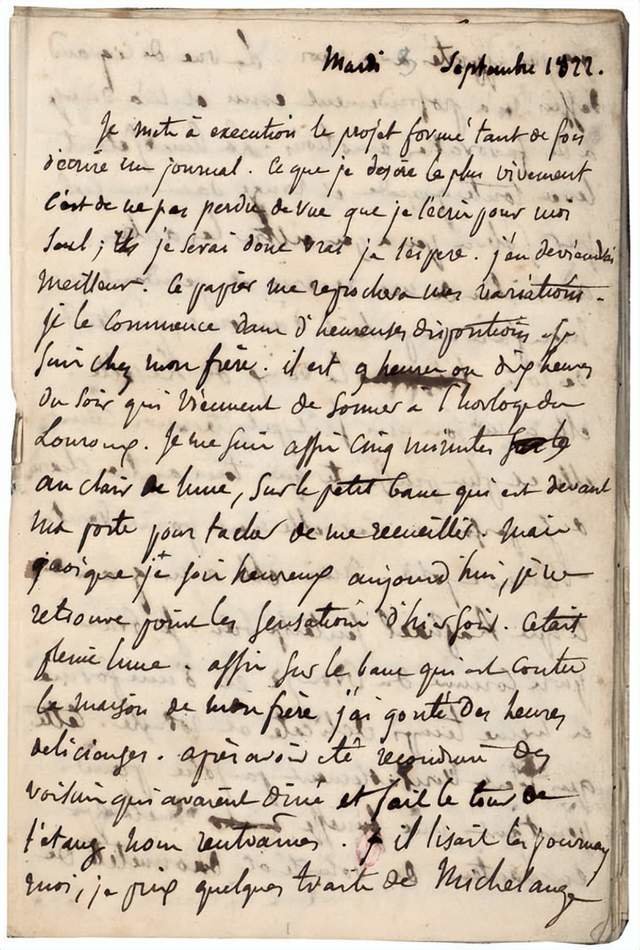 Mardi 3 Septembre 1822.
Je mets à execution le projet formé tant de fois
d'écrire un journal. Ce que je desire le plus vivement
c'est de ne pas perdre de vue que je l'écris pour moi
seul; je serai donc vrai je l'espere. j'en deviendrai
meilleur. Ce papier me reprochera mes variations.
je le commence dans d'heureuses dispositions. Je
suis chez mon frère. il est 9 heures ou dix heures
du soir qui viennent de sonner à l'horloge du
Louroux. Je me suis assis cinq minutes
au clair de lune, sur le petit banc qui est devant
ma porte pour tacher de me recueillir. Mais
quoique je sois heureux aujourd'hui, je ne
retrouve point les sensations d'hier soir. C'était
pleine lune. assis sur le banc qui est contre
la maison de mon frère j'ai gouté des heures
delicieuses. après avoir été reconduire des
voisins qui avaient diné et fait le tour de
l'étang nous rentrâmes. il lisait les journaux
moi, je pris quelques traits de Michelange